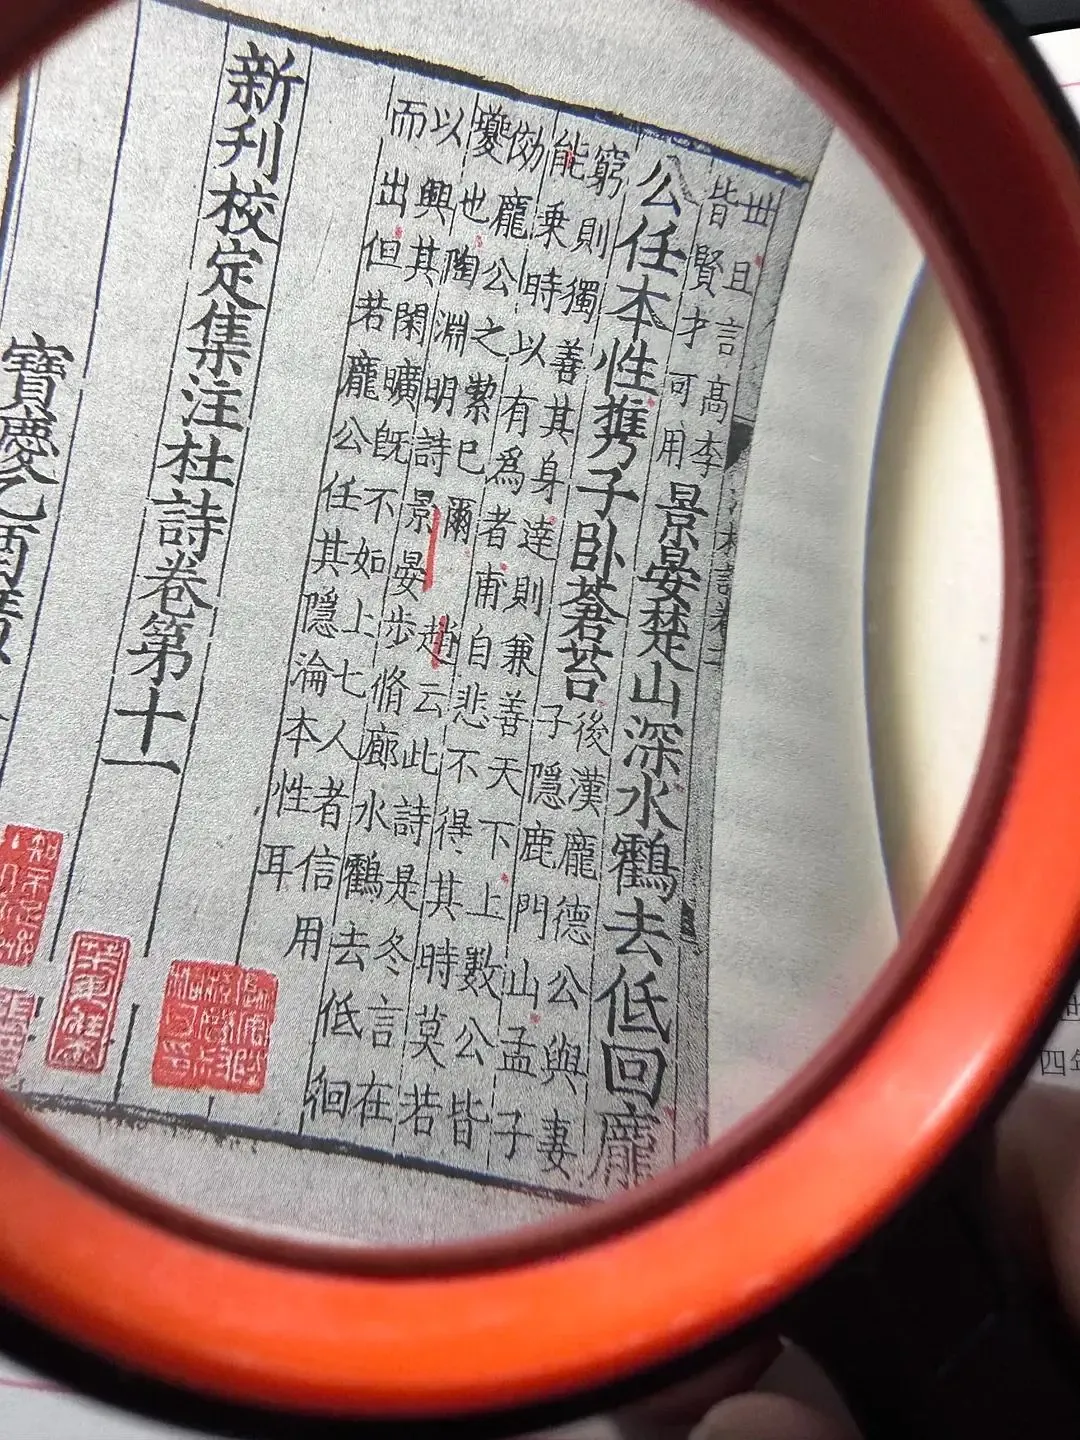 丗且言高李
皆賢才可用
景晏楚山深水鶴去低回龐
公任本性携子卧蒼苔
後漢龐德公與妻
子隱鹿門山孟子
窮則獨善其身達則兼善天下上數公皆
能乗時以有爲者甫自悲不得其時莫若
効龐公之縶巳爾趙云此詩是冬言在
夔也陶淵明詩景晏步脩廊水鶴去低徊
以興其閑曠旣不如上七人者信用
而出但若龐公任其隱淪本性耳
新刋校定集注杜詩卷第十一
寶慶乙酉
四年